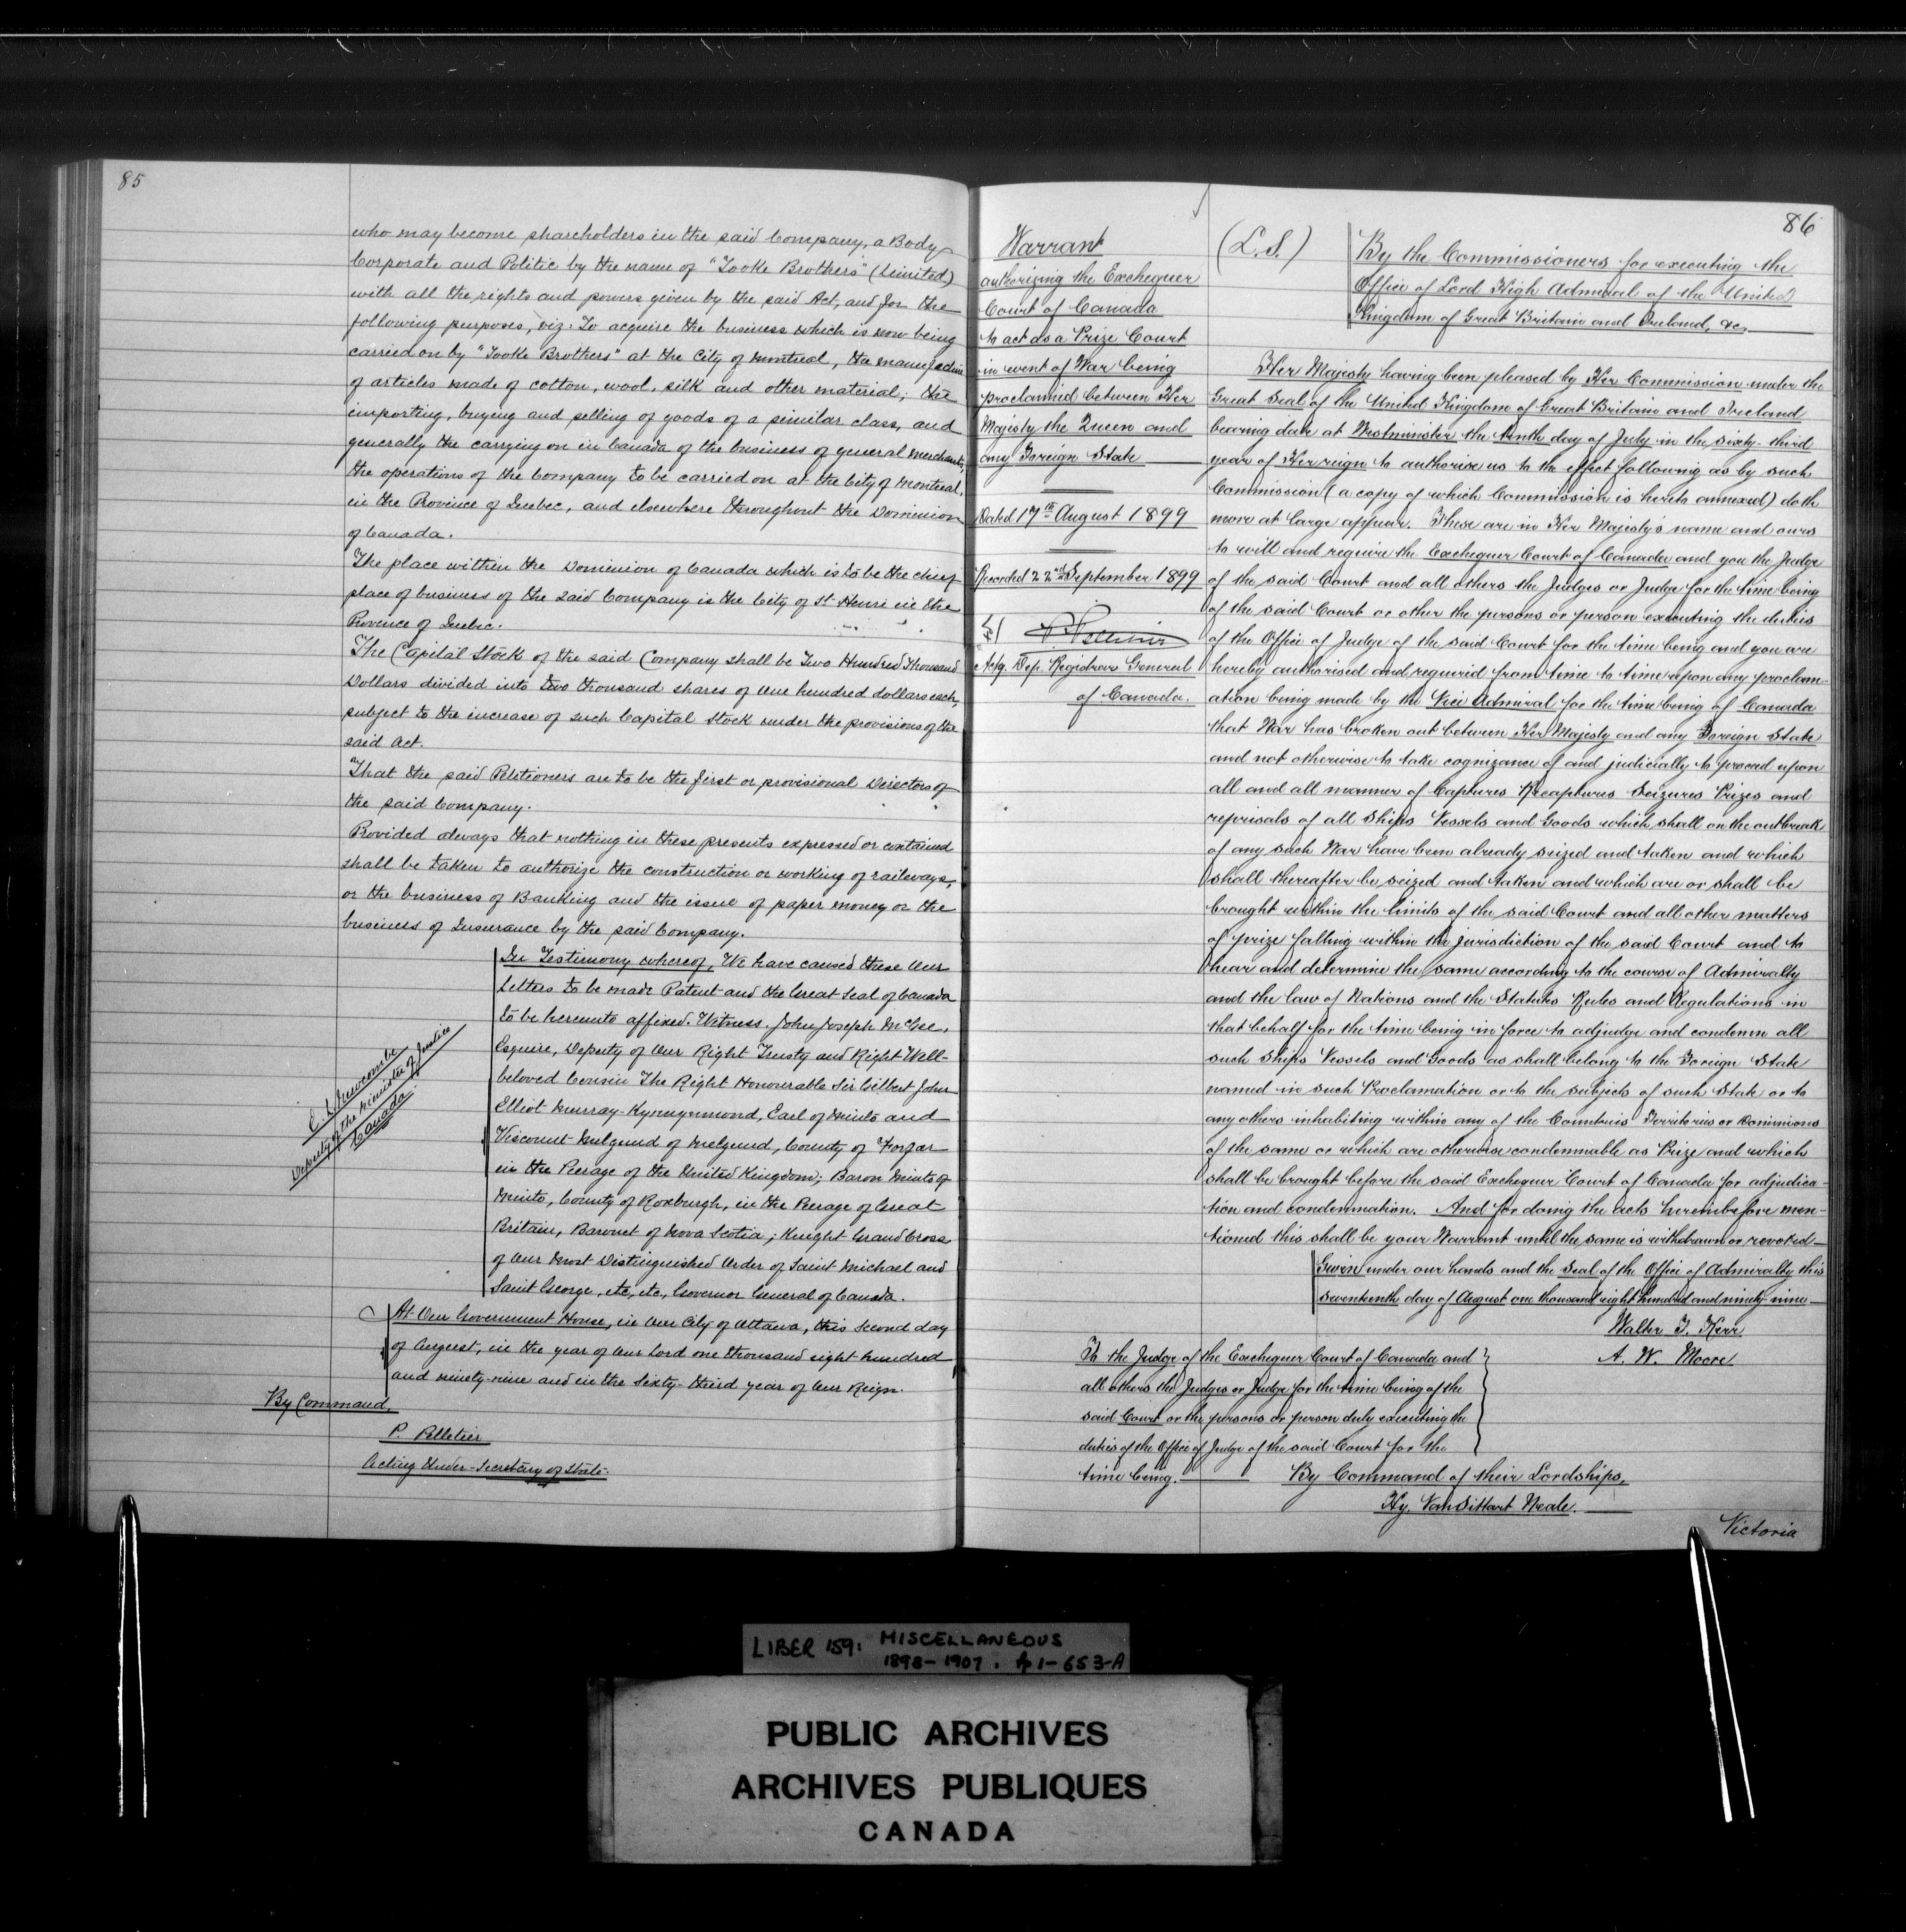 85
who may become shareholders in the said Company, a Body
Corporate and Politic by the name of "Tooke Brothers" (Limited)
with all the rights and powers given by the said Act, and for the
following purposes, viz: To acquire the business which is now being
carried on by "Tooke Brothers" at the City of Montreal, the manufacture
of articles made of cotton, wool, silk and other material; the
importing, buying and selling of goods of a similar class, and
generally the carrying on in Canada of the business of general merchants,
the operations of the Company to be carried on at the City of Montreal,
in the Province of Quebec, and elsewhere throughout the Dominion
of Canada.
The place within the Dominion of Canada which is to be the chief
place of business of the said Company is the City of St. Henri in the
Province of Quebec.
The Capital Stock of the said Company shall be Two Hundred Thousand
Dollars divided into two thousand shares of one hundred dollars each,
subject to the increase of such Capital Stock under the provisions of the
said Act.
That the said Petitioners are to be the first or provisional Directors of
the said Company.
Provided always that nothing in these presents expressed or contained
shall be taken to authorize the construction or working of railways,
or the business of Banking and the issue of paper money or the
business of Insurance by the said Company.
In Testimony whereof, We have caused these Our
Letters to be made Patent and the Great Seal of Canada
to be hereunto affixed. Witness. John Joseph McGee,
Esquire, Deputy of Our Right Trusty and Right Well-
beloved Cousin The Right Honourable Sir Gilbert John
Elliot Murray-Kynynmond, Earl of Minto and
Viscount Melgund of Melgund, County of Forfar
in the Peerage of the United Kingdom; Baron Minto of
Minto, County of Roxburgh, in the Peerage of Great
Britain, Baronet of Nova Scotia; Knight Grand Cross
of Our Most Distinguished Order of Saint Michael and
Saint George, etc, etc, Governor General of Canada.
At Our Government House, in Our City of Ottawa, this second day
of August, in the year of Our Lord one thousand eight hundred
and ninety-nine and in the Sixty-third year of Our Reign.
By Command,
P. Pelletier
Acting Under-Secretary of State.
E. L. Newcombe
Deputy of the Minister of Justice
Canada
86
Warrant
authorizing the Exchequer
Court of Canada
to act as a Prize Court
in event of War being
proclaimed between Her
Majesty the Queen and
any Foreign State
Dated 17th August 1899
Recorded 22nd September 1899
P. Pelletier
Actg. Dep. Registrar General
of Canada.
(L.S.)
By the Commissioners for executing the
Office of Lord High Admiral of the United
Kingdom of Great Britain and Ireland, &c,
Her Majesty having been pleased by Her Commission under the
Great Seal of the United Kingdom of Great Britain and Ireland
bearing date at Westminster the tenth day of July in the sixty-third
year of Her reign to authorise us to the effect following as by such
Commission (a copy of which Commission is hereto annexed) doth
more at large appear. These are in Her Majesty's name and ours
to will and require the Exchequer Court of Canada and you the Judge
of the said Court and all others the Judges or Judge for the time being
of the said Court or other the persons or person executing the duties
of the Office of Judge of the said Court for the time being and you are
hereby authorised and required from time to time upon any proclam-
ation being made by the Vice Admiral for the time being of Canada
that War has broken out between Her Majesty and any Foreign State
and not otherwise to take cognizance of and judicially to proceed upon
all and all manner of Captures Recaptures Seizures Prizes and
reprisals of all Ships Vessels and Goods which shall on the outbreak
of any such War have been already seized and taken and which
shall thereafter be seized and taken and which are or shall be
brought within the limits of the said Court and all other matters
of prize falling within the jurisdiction of the said Court and to
hear and determine the same according to the course of Admiralty
and the law of Nations and the Statutes Rules and Regulations in
that behalf for the time being in force to adjudge and condemn all
such Ships Vessels and Goods as shall belong to the Foreign State
named in such Proclamation or to the subjects of such State or to
any others inhabiting within any of the Countries Territories or Dominions
of the same or which are otherwise condemnable as Prize and which
shall be brought before the said Exchequer Court of Canada for adjudica-
tion and condemnation. And for doing the acts hereinbefore men-
tioned this shall be your Warrant until the same is withdrawn or revoked
Given under our hands and the Seal of the Office of Admiralty this
seventeenth day of August one thousand eight hundred and ninety-nine
Walter T. Kerr
A. W. Moore
To the Judge of the Exchequer Court of Canada and
all others the Judges or Judge for the time being of the
said Court or the persons or person duly executing the
duties of the Office of Judge of the said Court for the
time being.
By Command of their Lordships,
Hy. Vansittart Neale.
Victoria
LIBER 159: MISCELLANEOUS
1898-1907. p 1-653-A
PUBLIC ARCHIVES
ARCHIVES PUBLIQUES
CANADA